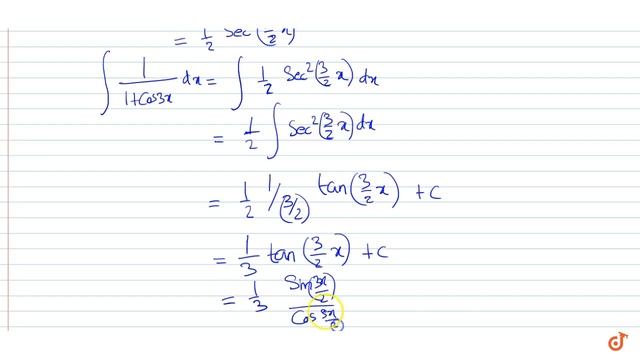 = 1/2 Sec²(3/2 x)
∫ 1/(1+Cos3x) dx = ∫ 1/2 Sec²(3/2 x) dx
= 1/2 ∫ Sec²(3/2 x) dx
= 1/2 1/(3/2) tan(3/2 x) + c
= 1/3 tan(3/2 x) + c
= 1/3 Sin(3x/2)/Cos(3x/2)